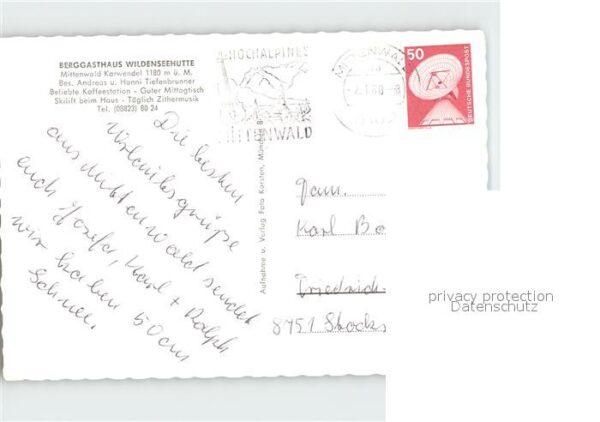 BERGGASTHAUS WILDENSEEHUTTE
Mittenwald Karwendel 1180 m ü. M.
Bes. Andreas u. Hanni Tiefenbrunner
Beliebte Kaffeestation - Guter Mittagtisch
Skilift beim Haus - Täglich Zithermusik
Tel. (08823) 80 24
Die besten
Urlaubsgrüße
aus Mittenwald sendet
euch Josefa, Karl + Ralph
wir haben 50 cm
Schnee.
Aufnahme u. Verlag Foto Karsten, München 8
HOCHALPINES
MITTENWALD
MITTENWALD
50
DEUTSCHE BUNDESPOST
Fam.
Karl Ba
Friedrich
8751 Stocks
privacy protection
Datenschutz